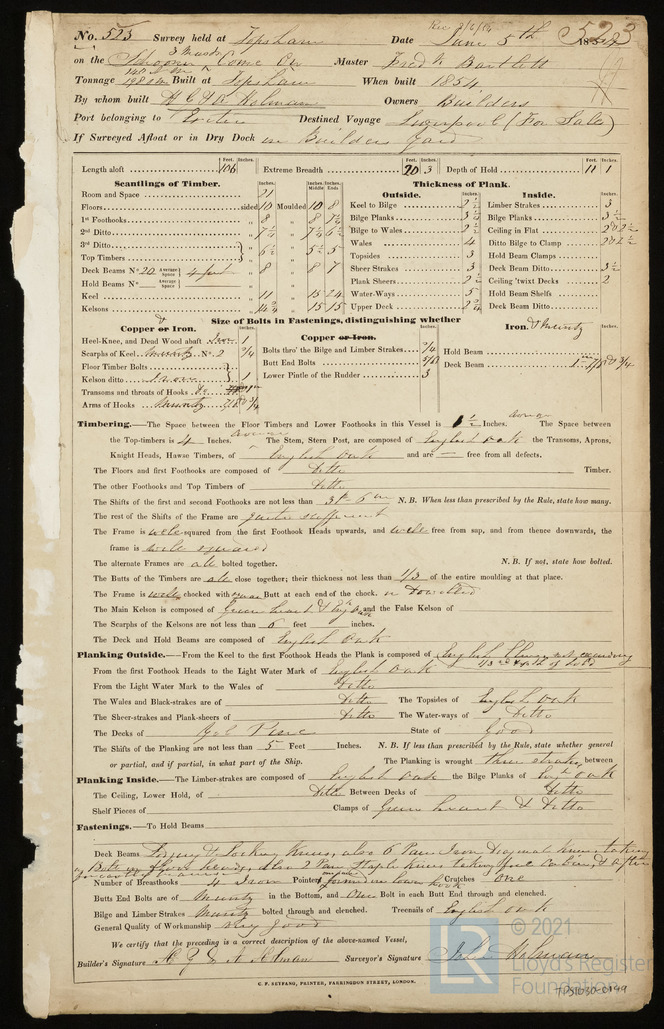 Rec 3/6/54
523
No. 523 Survey held at Topsham Date June 5th 1854
on the 3 Masted Schooner Come On Master Fredk Bartlett
Tonnage Built at Topsham When built 1854
By whom built H C & A Holman Owners Builders
Port belonging to Exeter Destined Voyage Liverpool (For Sale)
If Surveyed Afloat or in Dry Dock in Builders Yard
Length aloft 106 Extreme Breadth 20 3 Depth of Hold 11 1
Feet. Inches. Feet. Inches. Feet. Inches.
Scantlings of Timber. Thickness of Plank.
Inches. Inches. Middle Inches. Ends Outside. Inches. Inside. Inches.
Room and Space 21 Keel to Bilge 2 1/2 Limber Strakes 3
Floors sided 10 Moulded 10 8 Bilge Planks 3 1/4 Bilge Planks 3 1/2
1st Foothooks " 8 " 8 7 1/2 Bilge to Wales 2 1/2 Ceiling in Flat
2nd Ditto " 7 1/4 " 7 1/4 6 1/2 Wales 4 Ditto Bilge to Clamp
3rd Ditto Topsides 3 Hold Beam Clamps
Top Timbers " 6 1/2 " 5 1/2 5 Sheer Strakes 3 Deck Beam Ditto 3 1/2
Deck Beams No 20 Average Space 4 feet " 8 " 8 7 Plank Sheers 2 1/2 Ceiling 'twixt Decks 2
Hold Beams No Average Space " " Water-Ways 5 Hold Beam Shelfs
Keel " 11 " 15 24 Upper Deck 2 3/4 Deck Beam Ditto
Kelsons " " 15 15
Size of Bolts in Fastenings, distinguishing whether
Copper or Iron. Inches. Copper or Iron. Inches. Iron. & Muntz Inches.
Heel-Knee, and Dead Wood abaft Iron 1 Bolts thro' the Bilge and Limber Strakes 3/4 Hold Beam
Scarphs of Keel Muntz No. 2 3/4 Butt End Bolts 5/8 Deck Beam
Floor Timber Bolts Lower Pintle of the Rudder 3
Kelson ditto Iron 1
Transoms and throats of Hooks Do
Arms of Hooks Muntz
Timbering.—The Space between the Floor Timbers and Lower Foothooks in this Vessel is 1 1/2 Inches. average The Space between
the Top-timbers is 4 Inches. average The Stem, Stern Post, are composed of English Oak the Transoms, Aprons,
Knight Heads, Hawse Timbers, of English Oak and are — free from all defects.
The Floors and first Foothooks are composed of Ditto Timber.
The other Foothooks and Top Timbers of Ditto
The Shifts of the first and second Foothooks are not less than 3ft 6in N.B. When less than prescribed by the Rule, state how many.
The rest of the Shifts of the Frame are quite sufficient
The Frame is well squared from the first Foothook Heads upwards, and well free from sap, and from thence downwards, the
frame is well squared
The alternate Frames are all bolted together. N.B. If not, state how bolted.
The Butts of the Timbers are all close together; their thickness not less than 1/3 of the entire moulding at that place.
The Frame is well chocked with near Butt at each end of the chock. or Dowelled
The Main Kelson is composed of Green heart & Eng Oak and the False Kelson of
The Scarphs of the Kelsons are not less than 6 feet inches.
The Deck and Hold Beams are composed of English Oak
Planking Outside.—From the Keel to the first Foothook Heads the Plank is composed of English Elm not exceeding
From the first Foothook Heads to the Light Water Mark of English Oak
From the Light Water Mark to the Wales of Ditto
The Wales and Black-strakes are of Ditto The Topsides of English Oak
The Sheer-strakes and Plank-sheers of Ditto The Water-ways of Ditto
The Decks of Yel Pine State of Good
The Shifts of the Planking are not less than 5 Feet Inches. N.B. If less than prescribed by the Rule, state whether general
or partial, and if partial, in what part of the Ship. The Planking is wrought three strakes between
Planking Inside.—The Limber-strakes are composed of English Oak the Bilge Planks of Engh Oak
The Ceiling, Lower Hold, of Ditto Between Decks of Ditto
Shelf Pieces of Clamps of Green heart & Ditto
Fastenings.—To Hold Beams
Deck Beams Lodging & Locking Knees, also 6 Pair Iron Diagonal Knees taking
Bolts in floor heads, also 2 Pair Staple Knees
Number of Breasthooks 4 Iron Pointers Crutches One
Butts End Bolts are of Muntz in the Bottom, and One Bolt in each Butt End through and clenched.
Bilge and Limber Strakes Muntz bolted through and clenched. Treenails of English Oak
General Quality of Workmanship very good
We certify that the preceding is a correct description of the above-named Vessel,
Builder's Signature H C & A Holman Surveyor's Signature John Holman
C. F. SEYFANG, PRINTER, FARRINGDON STREET, LONDON.
© 2021
LR
Lloyd's Register
Foundation